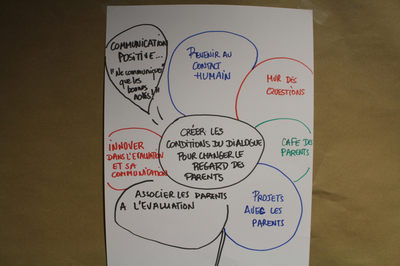 COMMUNICATION
POSITIVE...
"Ne communiquer
que les
bonnes
notes!"
REVENIR AU
CONTACT
HUMAIN
MUR DES
QUESTIONS
CRÉER LES
CONDITIONS DU DIALOGUE
POUR CHANGER LE
REGARD DES
PARENTS
INNOVER
DANS L'EVALUATION
ET SA
COMMUNICATION
CAFE DES
PARENTS
ASSOCIER LES PARENTS
A L'EVALUATION
PROJETS
AVEC LES
PARENTS